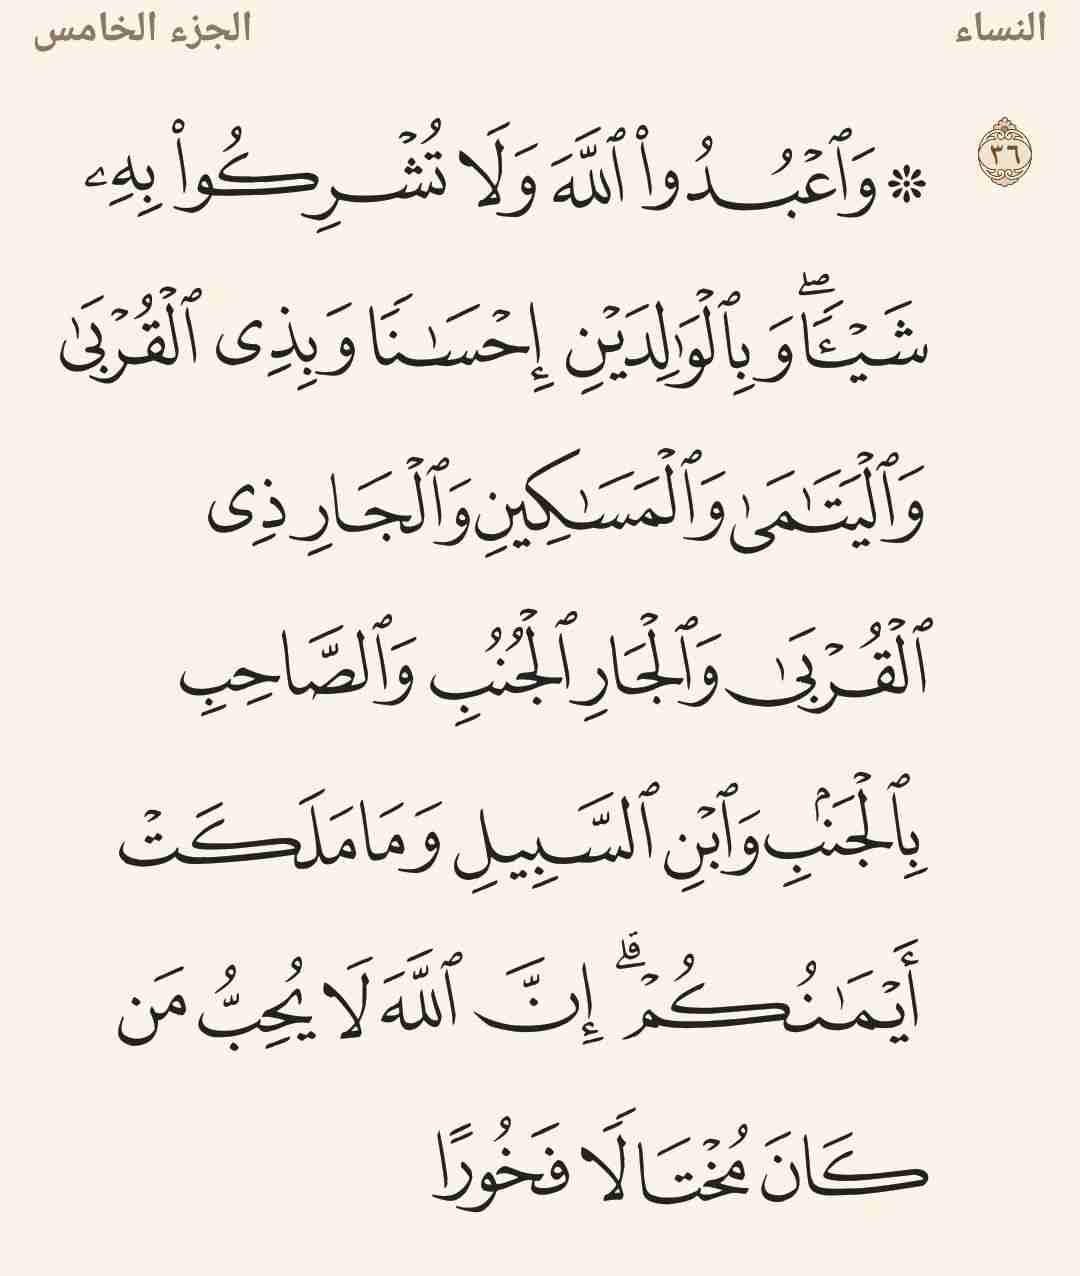 النساء
الجزء الخامس
٣٦
۞ وَٱعْبُدُوا۟ ٱللَّهَ وَلَا تُشْرِكُوا۟ بِهِۦ
شَيْـًٔاۖ وَبِٱلْوَٰلِدَيْنِ إِحْسَـٰنًا وَبِذِى ٱلْقُرْبَىٰ
وَٱلْيَتَـٰمَىٰ وَٱلْمَسَـٰكِينِ وَٱلْجَارِ ذِى
ٱلْقُرْبَىٰ وَٱلْجَارِ ٱلْجُنُبِ وَٱلصَّاحِبِ
بِٱلْجَنۢبِ وَٱبْنِ ٱلسَّبِيلِ وَمَا مَلَكَتْ
أَيْمَـٰنُكُمْۗ إِنَّ ٱللَّهَ لَا يُحِبُّ مَن
كَانَ مُخْتَالًا فَخُورًا